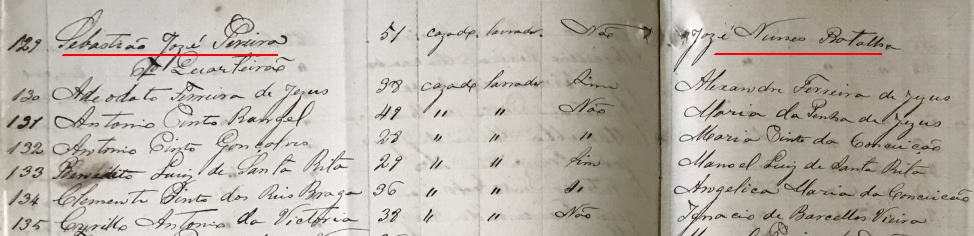 129 Sebastião Jozé Pereira 51 cazado lavrador Não Jozé Nunes Batalha
Quarteirão
130 Adeodato Ferreira de Jezus 38 cazado lavrador Sim Alexandre Ferreira de Jezus
131 Antonio Pinto Rangel 49 " " Não Maria da Penha de Jezus
132 Antonio Pinto Gonçalves 28 " " " Maria Pinto da Conceição
133 Benedito Luiz de Santa Rita 29 " " Sim Manoel Luiz de Santa Rita
134 Clemente Pinto dos Reis Braga 36 " " Angelica Maria da Conceicão
135 Cyrillo Antonio da Victoria 38 " " Não Ignacio de Barcellos Vieira